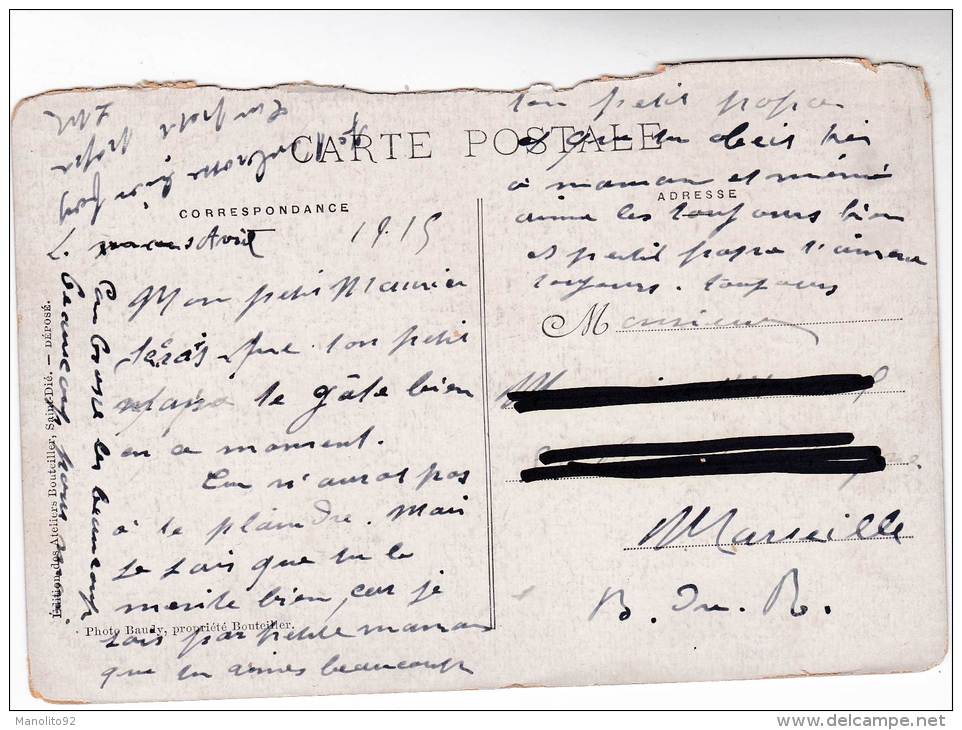 CARTE POSTALE
CORRESPONDANCE
ADRESSE
Avril 1915
Mon petit Maurice
Séras que ton petit
papa te gâte bien
en ce moment.
Tu n'auras pas
à te plaindre. Mais
je sais que tu le
merite bien, car je
sais par petite maman
que tu aimes beaucoup
ton petit papa
et que tu obeis bien
à maman et mémé
aime les toujours bien
et petit papa t'aimera
toujours. toujours
Monsieur
Marseille
B. du. R.
embrasse les beaucoup
beaucoup pour
Ton petit papa
Édition des Ateliers Bouteiller, Saint-Dié. — DÉPOSÉ.
Photo Baudy, propriété Bouteiller.
Manolito92
http://www.delcampe.net